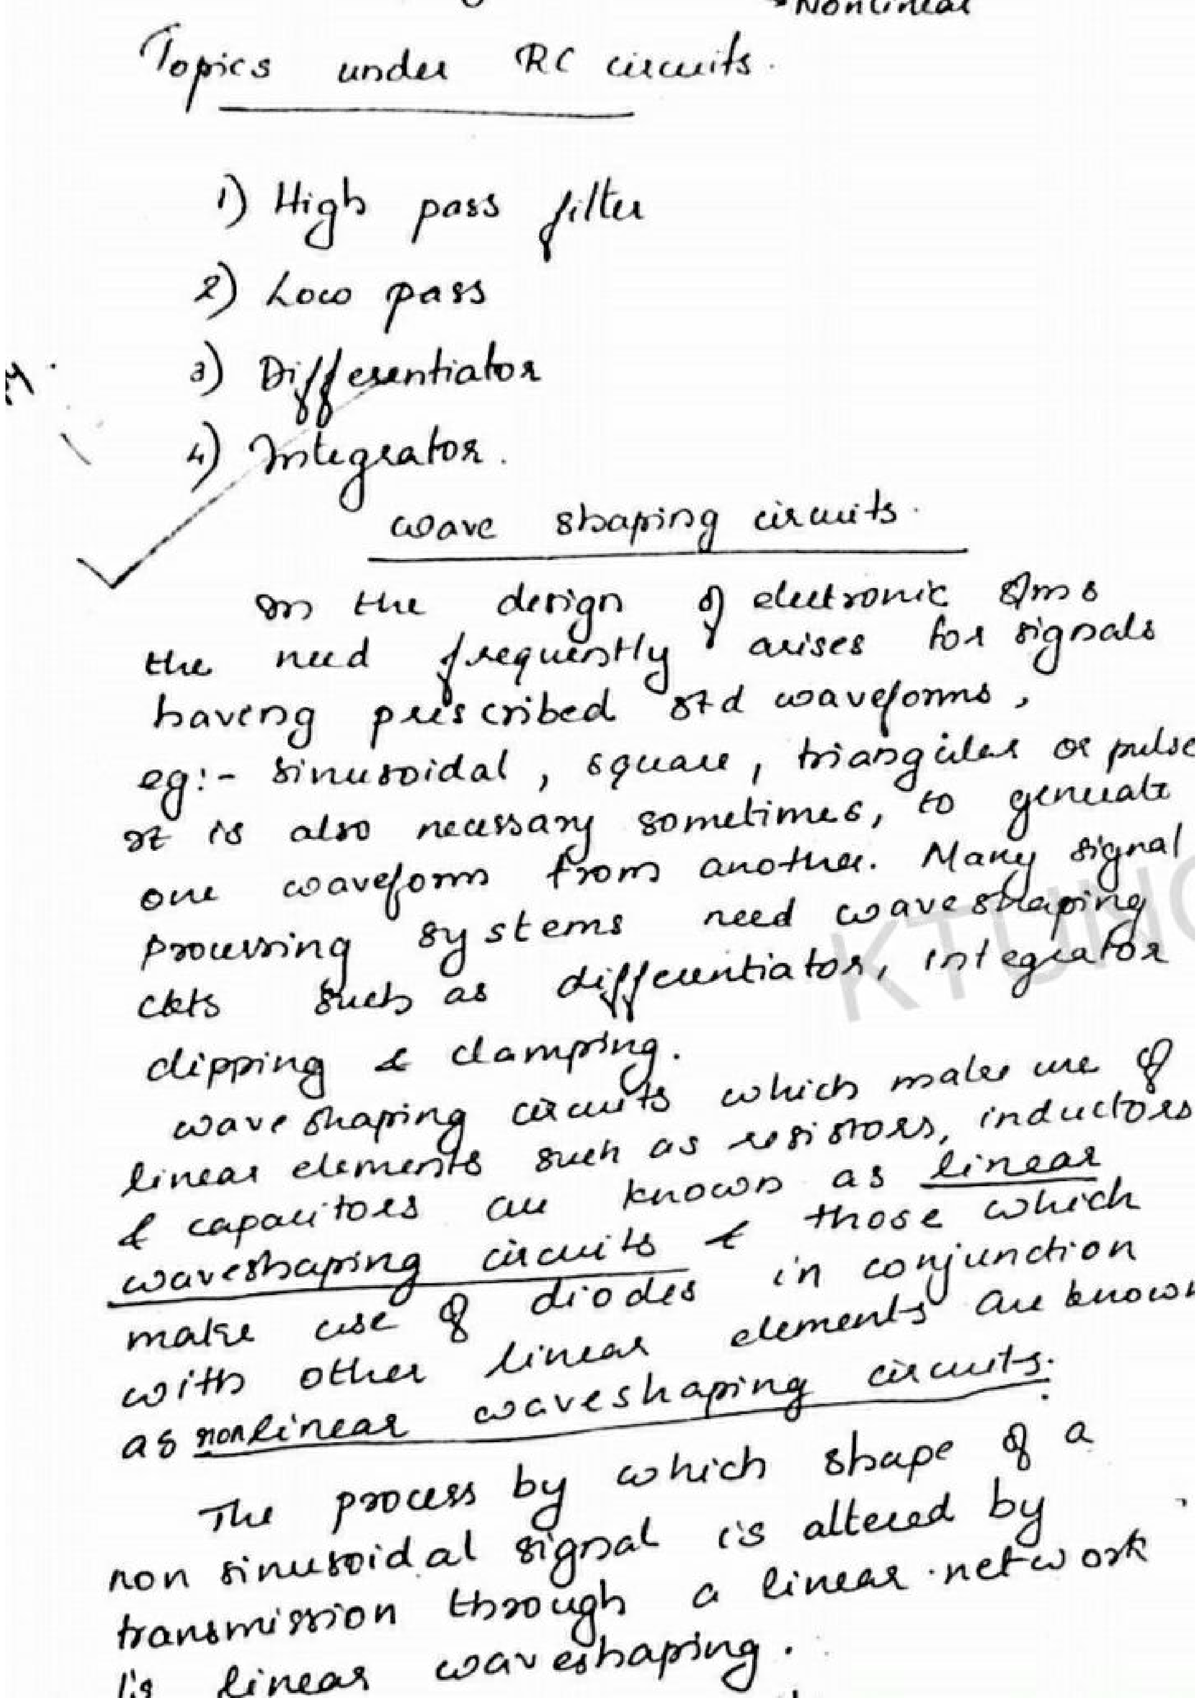 Nonlinear
Topics under RC circuits.
1) High pass filter
2) Low pass
3) Differentiator
4) Integrator.
wave shaping circuits.
In the design of electronic s/ms
the need frequently arises for signals
having prescribed std waveforms,
eg:- sinusoidal, square, triangular or pulse
It is also necessary sometimes, to generate
one waveform from another. Many signal
processing systems need waveshaping
ckts such as differentiator, integrator
clipping & clamping.
wave shaping circuits which makes use of
linear elements such as resistors, inductors
& capacitors are known as linear
waveshaping circuits & those which
make use of diodes in conjunction
with other linear elements are known
as nonlinear waveshaping circuits.
The process by which shape of a
non sinusoidal signal is altered by
transmission through a linear network
is linear waveshaping.